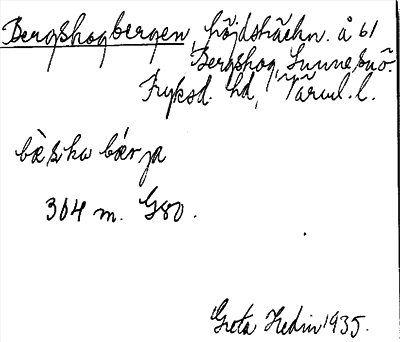 Bergskogbergen, höjdsträckn. å 61
Bergskog, Sunne sn
Fryksd. hd, Värml. l.
bæ̀ska bær ja
304 m. G80.
Greta Hedin 1935.